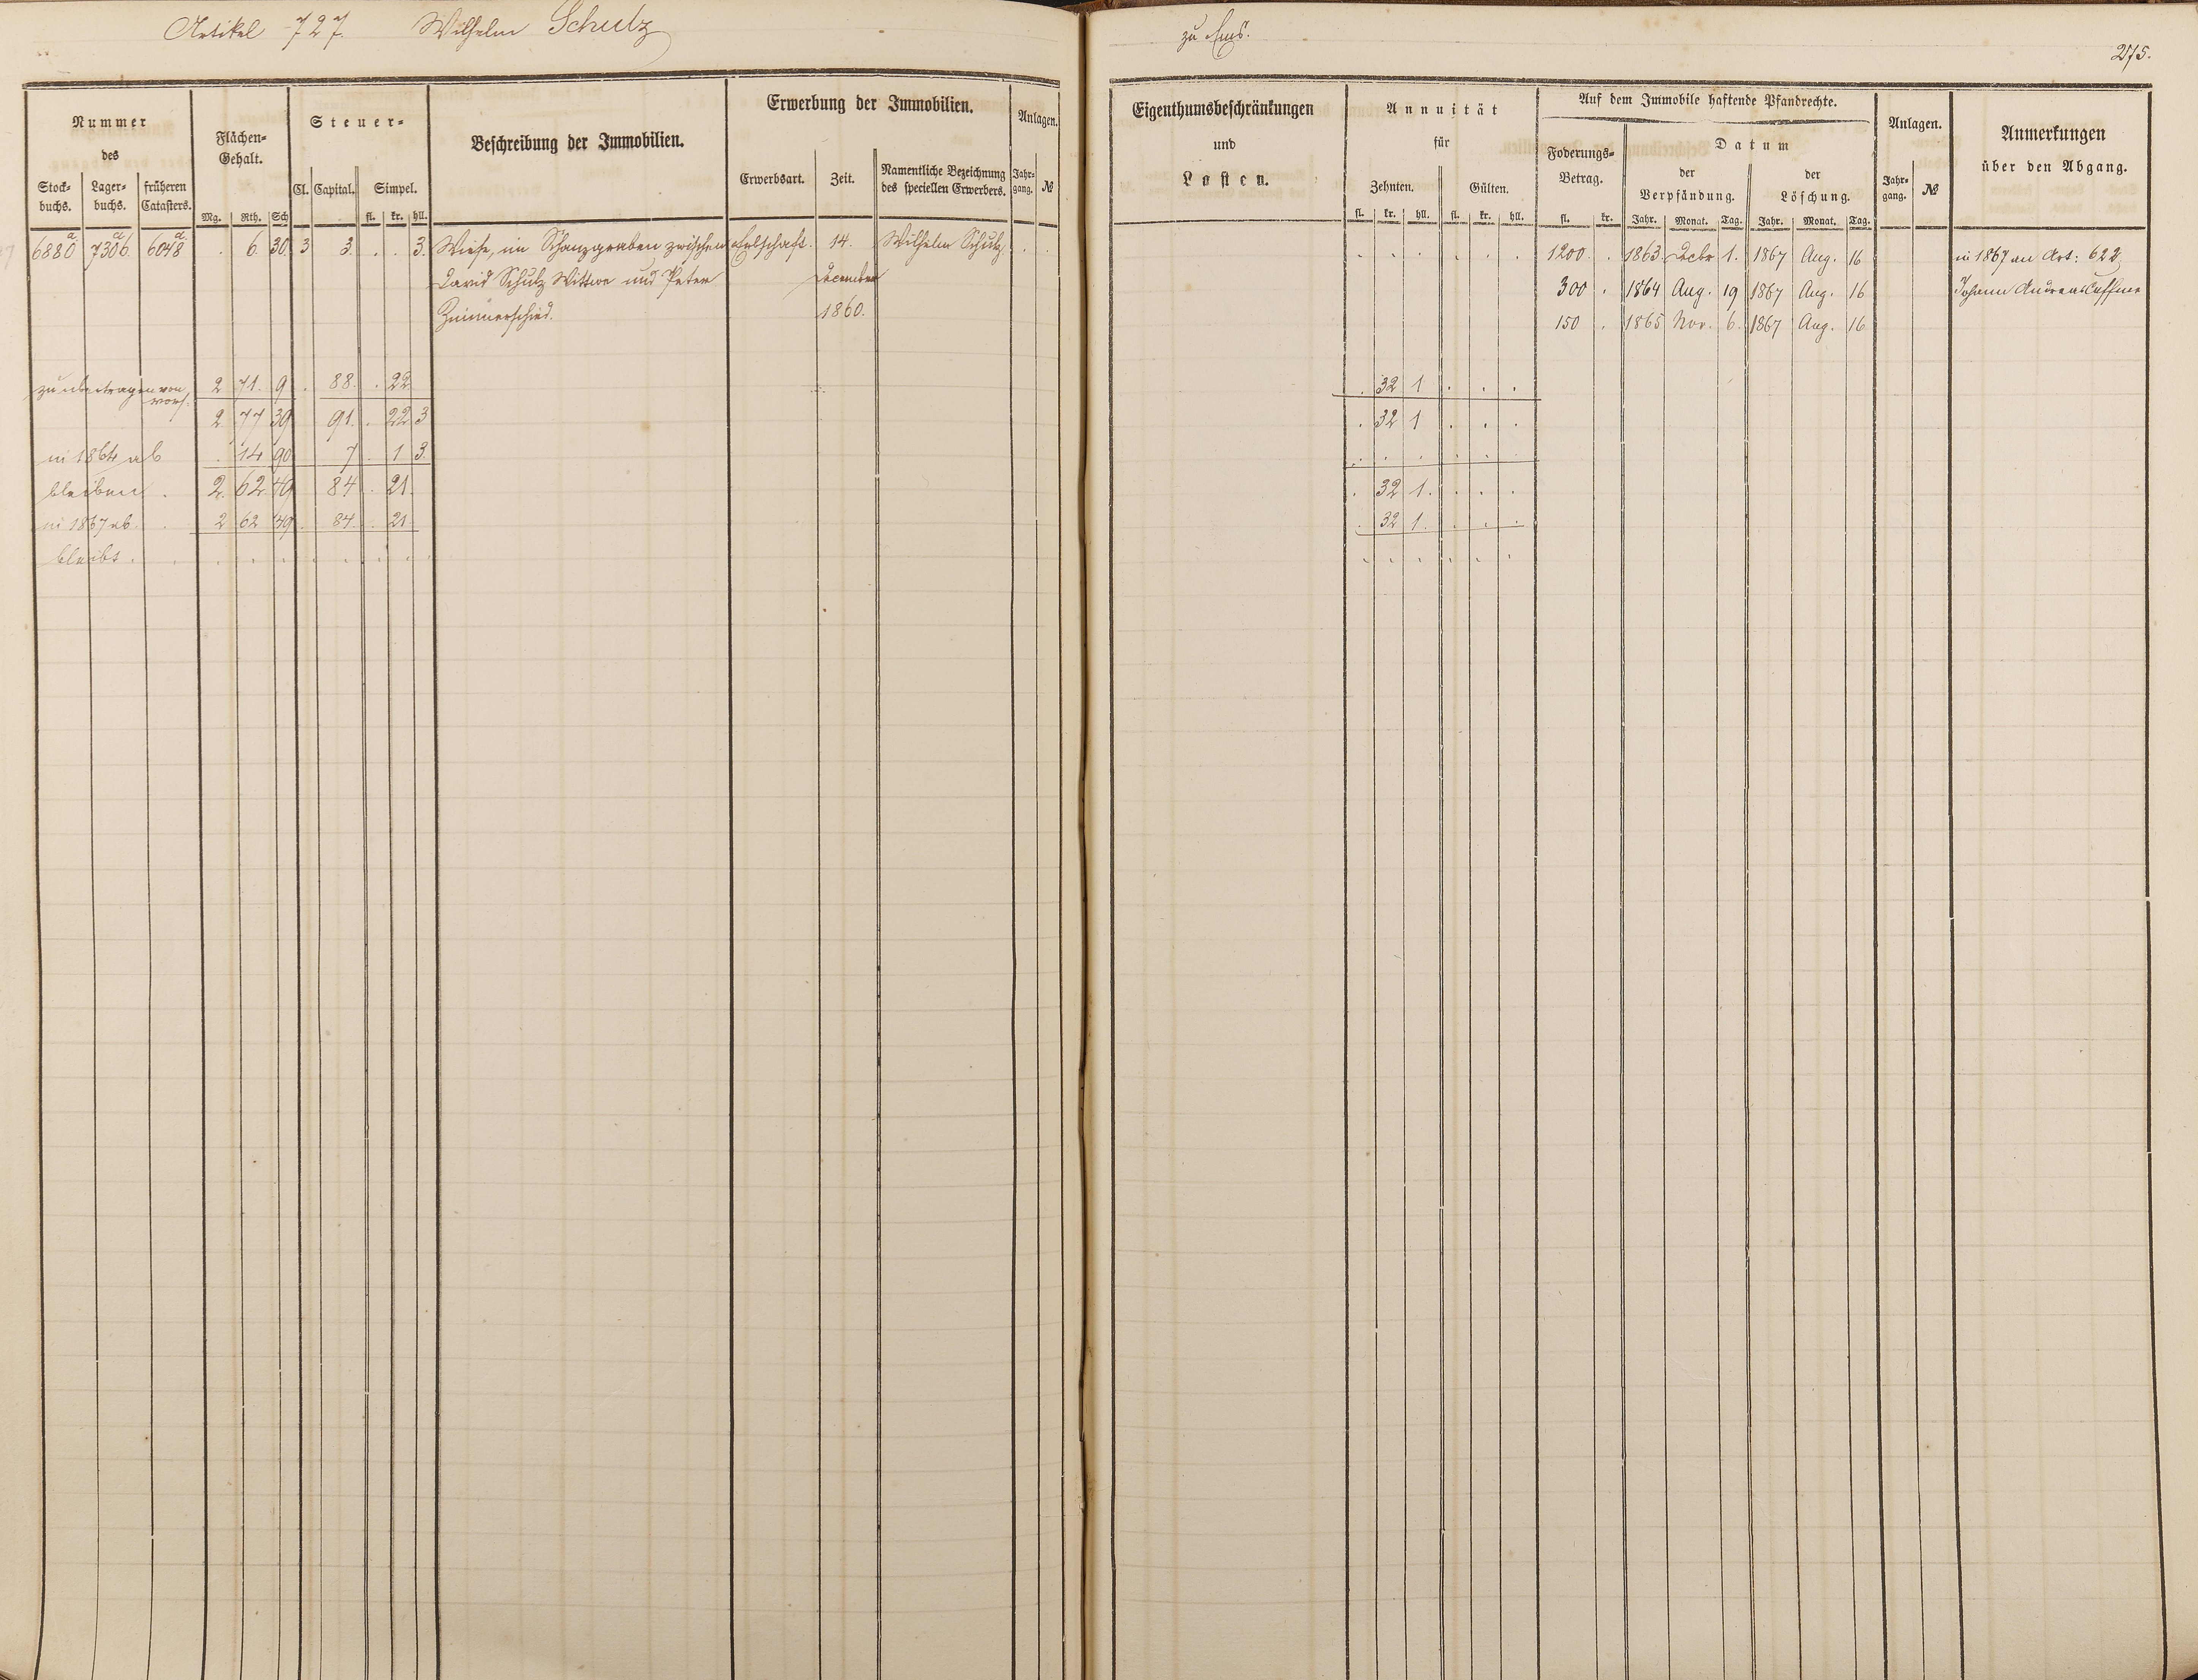 Artikel 727. Wilhelm Schulz
zu Ems.
275.
Nummer
des
Stock-
buchs.
Lager-
buchs.
früheren
Catasters.
Flächen-
Gehalt.
Mg. Rth. Sch
Steuer-
Cl. Capital. Simpel.
fl. kr. hll.
Beschreibung der Immobilien.
Erwerbung der Immobilien.
Erwerbsart. Zeit.
Namentliche Bezeichnung
des speciellen Erwerbers.
Anlagen.
Jahr-
gang.
№
Eigenthumsbeschränkungen
und
Lasten.
Annuität
für
Zehnten. Gülten.
fl. kr. hll. fl. kr. hll.
Auf dem Immobile haftende Pfandrechte.
Foderungs-
Betrag.
fl. kr.
Datum
der
Verpfändung.
Jahr. Monat. Tag.
der
Löschung.
Jahr. Monat. Tag.
Anlagen.
Jahr-
gang.
№
Anmerkungen
über den Abgang.
6880a 7306a 6048a . 6. 30. 3 3. . . 3. Wiese, im Schanzgraben zwischen Erbschaft. 14. Wilhelm Schulz. . . . . . . . . 1200 . 1863. Decbr 1. 1867 Aug. 16 in 1867 an Art: 622
David Schulz Wittwe und Peter December 300 . 1864 Aug. 19 1867 Aug. 16 Johann Andreas
Zimmerschied. 1860. 150 . 1865 Nov. 6. 1867 Aug. 16
zu übertragen von vors. 2 71. 9 . 88. . 22 . 32 1 . . .
2 77 39 91. . 22 3 . 32 1 . . .
in 1864 ab . 14 90 7 . 1 3. . . . . . .
bleiben . 2. 62. 49 84 . 21. . 32 1. . . .
in 1867 ab . 2 62 49 . 84. . 21 . 32 1. . . .
bleibt . . . . . . . . . . . . . . . .